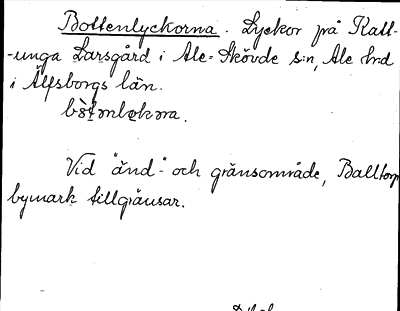 Bottenlyckorna. Lyckor på Katt-
-unga Larsgård i Ale-Skövde s:n, Ale hrd
i Älfsborgs län.
Vid "änd"- och gränsområde, Balltorp
bymark tillgränsar.